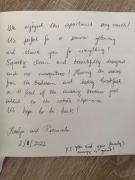 We enjoyed this apartment very much!
It's perfect for a summer getaway
and thank you for everything!
Squeaky clean and beautifully designed
and no mosquitoes! Having the
from the bedroom and being breakfast
in front of the amazing
added to the whole experience
We hope to be back!
and
2/8/2022
P.S you and your family's
energy is great!